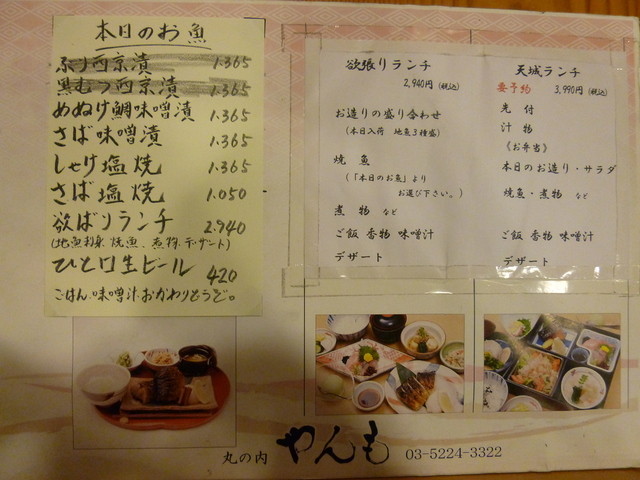 本日のお魚
ぶり西京漬 1.365
黒むつ西京漬 1.365
めぬけ鯛味噌漬 1.365
さば味噌漬 1.365
しゃけ塩焼 1.365
さば塩焼 1.050
欲ばりランチ 2.940
(地魚刺身、焼魚、煮物、デザート)
ひと口生ビール 420
ごはん、味噌汁、おかわりどうぞ。
欲張りランチ
2,940円(税込)
お造りの盛り合わせ
(本日入荷 地魚3種盛)
焼 魚
(「本日のお魚」より
お選び下さい。)
煮 物 など
ご飯 香物 味噌汁
デザート
天城ランチ
要予約 3,990円(税込)
先 付
汁 物
《お弁当》
本日のお造り・サラダ
焼魚・煮物 など
ご飯 香物 味噌汁
デザート
丸の内 やんも 03-5224-3322